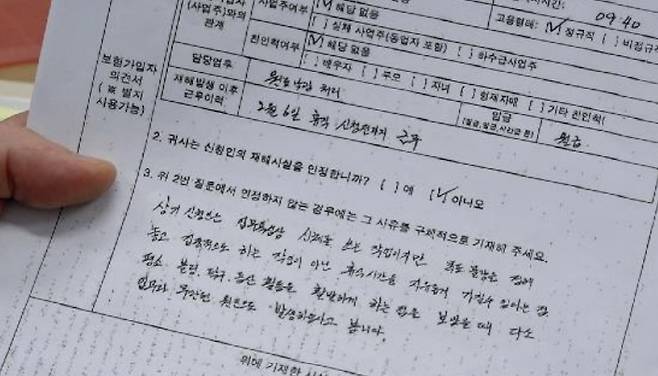 (사업주)와의 관계
사업주여부 [✓] 해당 없음
[ ] 실제 사업주(동업자 포함) [ ] 하수급사업주
고용형태: [✓] 정규직 [ ] 비정규직
09:40
친인척여부 [✓] 해당 없음
[ ] 배우자 [ ] 부모 [ ] 자녀 [ ] 형제자매 [ ] 기타 친인척(
담당업무
재해발생 이후 근무이력 2월 6일 휴직 신청전까지 근무
임금 (월급, 일급, 시간급 등) 월급
보험가입자
의견서
(※ 별지
사용가능)
2. 귀사는 신청인의 재해사실을 인정합니까? [ ] 예 [✓] 아니오
3. 위 2번 질문에서 인정하지 않는 경우에는 그 사유를 구체적으로 기재해 주세요.
상기 신청인은 업무특성상 신체를 쓰는 작업이지만
놓고 집중적으로 하는 작업이 아닌 휴식시간을 자유롭게 가질수 있다는 점
평소 볼링, 탁구, 등산 활동을 활발하게 하는 점을 보았을 때 다소
업무와 무관한 원인으로 발생하였다고 봅니다.
위에 기재한